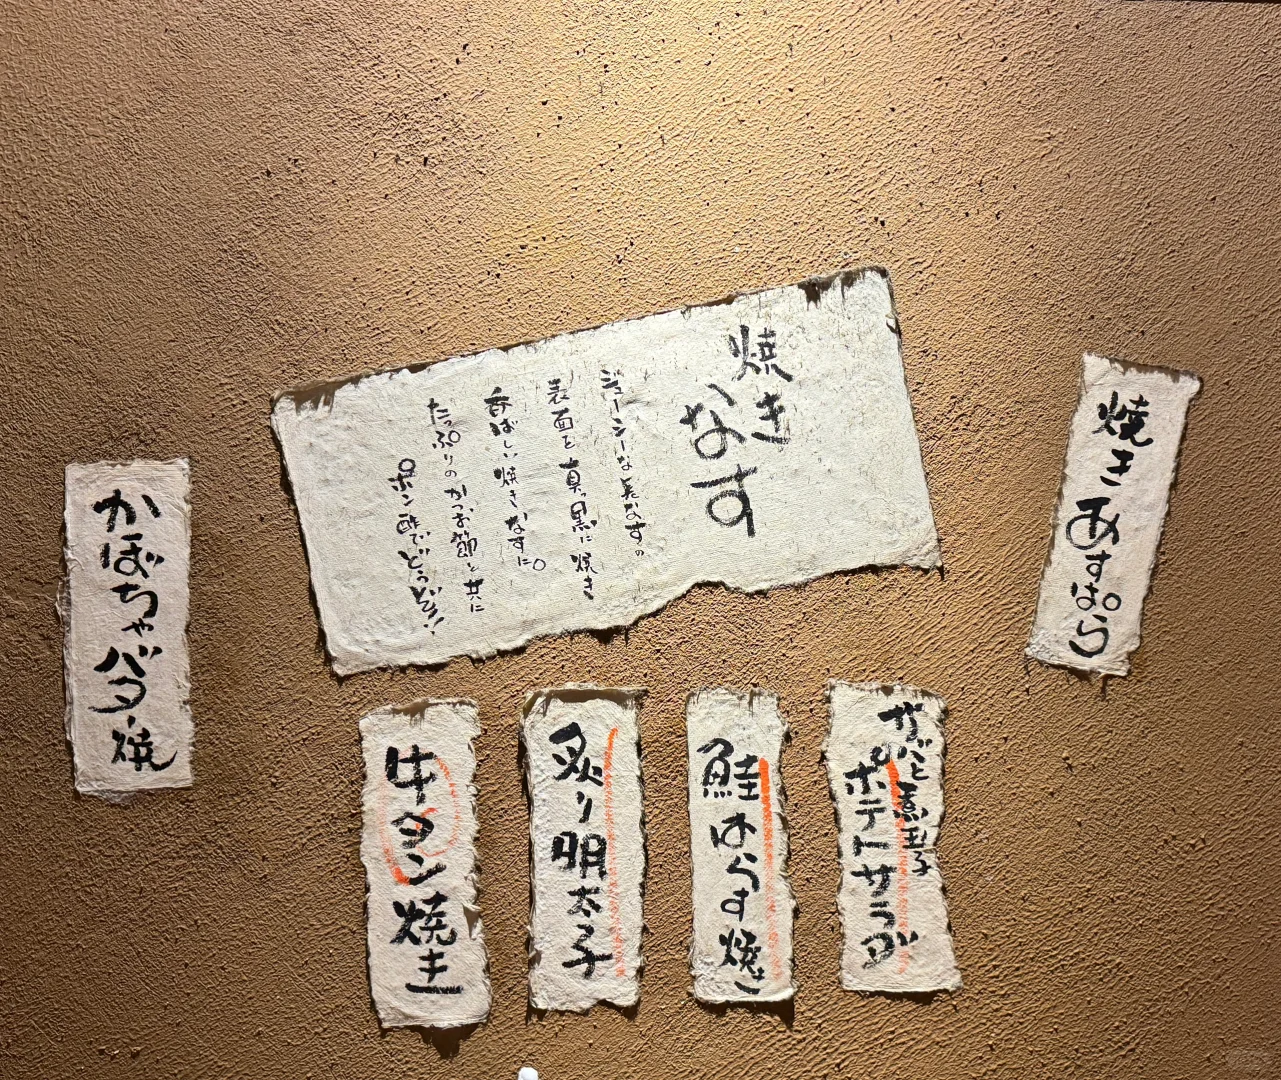 焼き
なす
ジューシーな長なすの
表面を真っ黒に焼き
香ばしい焼きなすに。
たっぷりのかつお節と共に
ポン酢でどうぞ!!
焼きあすぱら
かぼちゃバター焼
牛タン焼き
炙り明太子
鮭はらす焼き
ポテトサラダ